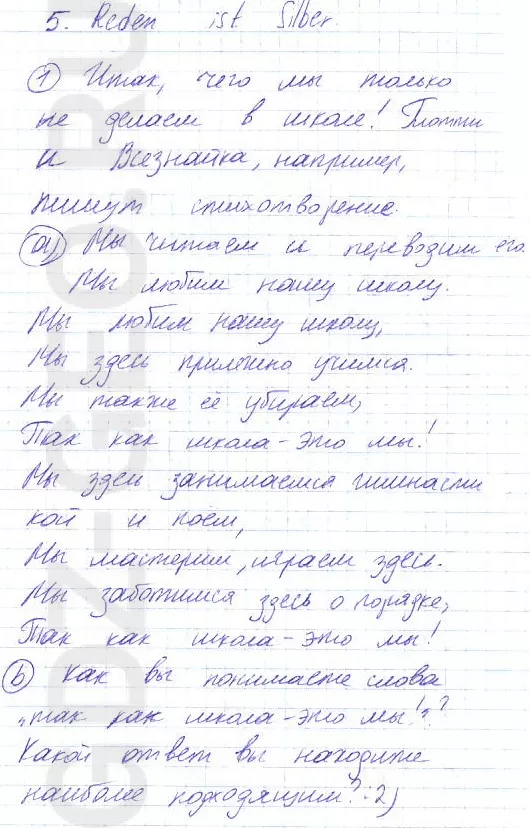 5. Reden ist Silber.
① Итак, чего мы только
не делаем в школе! Потти
и Всезнайка, например,
пишут стихотворение.
a) Мы читаем и переводим его.
Мы любим нашу школу.
Мы любим нашу школу,
Мы здесь прилежно учимся.
Мы также её убираем,
Так как школа - это мы!
Мы здесь занимаемся гимнасти
кой и поём,
Мы мастерим, играем здесь.
Мы заботимся здесь о порядке,
Так как школа - это мы!
b) Как вы понимаете слова
„так как школа - это мы!"?
Какой ответ вы находите
наиболее подходящим? 2)
GDZ-GEO.RU